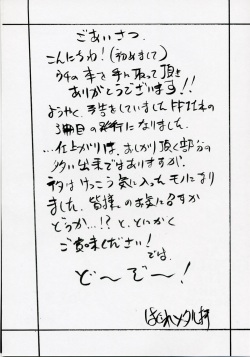 ごあいさつ
こんにちわ!(初めまして)
ウチの本を手に取って頂き
ありがとうございます!!
ようやく、予告をしていましたFF本の
3冊目の発行になりました。
…仕上がりは、あしがり頂く部分の
多い出来ではありますが、
私はけっこう気に入ったモノになり
ました。皆様のお気に召すか
どうか…!?と、とにかく
ご賞味ください!
では、
ど〜ぞ〜!
はぐれメタル